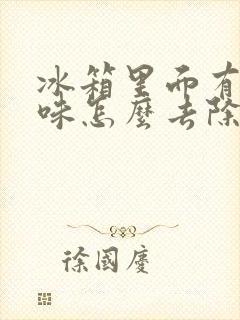 冰箱里面有
味怎麼去除
徐國慶